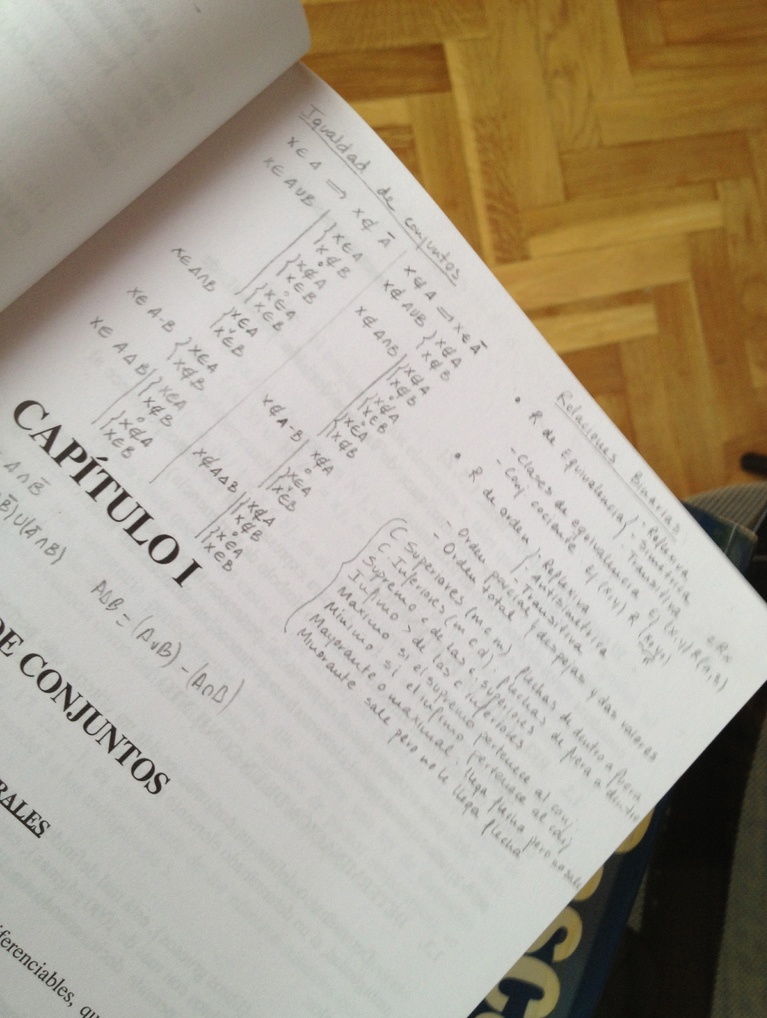 Igualdad de conjuntos
x∈A ⟹ x∉Ā
x∈A∪B
{x∈A
x∉B
o
{x∉A
x∈B
o
{x∈A
x∈B
x∈A∩B
{x∈A
x∈B
x∈A-B
{x∈A
x∉B
x∈AΔB
{x∈A
x∉B
o
{x∉A
x∈B
x∉A ⟹ x∈Ā
x∉A∪B
{x∉A
x∉B
x∉A∩B
{x∉A
x∉B
o
{x∉A
x∈B
o
{x∈A
x∉B
x∉A-B
x∉A
o
{x∈A
x∈B
x∉AΔB
{x∉A
x∉B
o
{x∈A
x∈B
Relaciones Binarias
• R de equivalencia
- Reflexiva
- Simétrica
- Transitiva
- Clases de equivalencia
- Conj cociente
• R de orden
- Reflexiva
- Antisimétrica
- Transitiva
- Orden parcial
- Orden total
y despejas y das valores
C Superiores (m c m) flechas de dentro a fuera
C. Inferiores (m c d). flechas de fuera a dentro
Supremo < de las c superiores
Infimo > de las c inferiores
Maximo si el supremo pertenece al conj
Minimo si el infimo pertenece al conj
Mayorante o maximal. llega flecha pero no sale
Minorante sale pero no le llega flecha
CAPÍTULO I
A∩B̄
∪(Ā∩B)
AΔB = (A∪B) - (A∩B)
DE CONJUNTOS